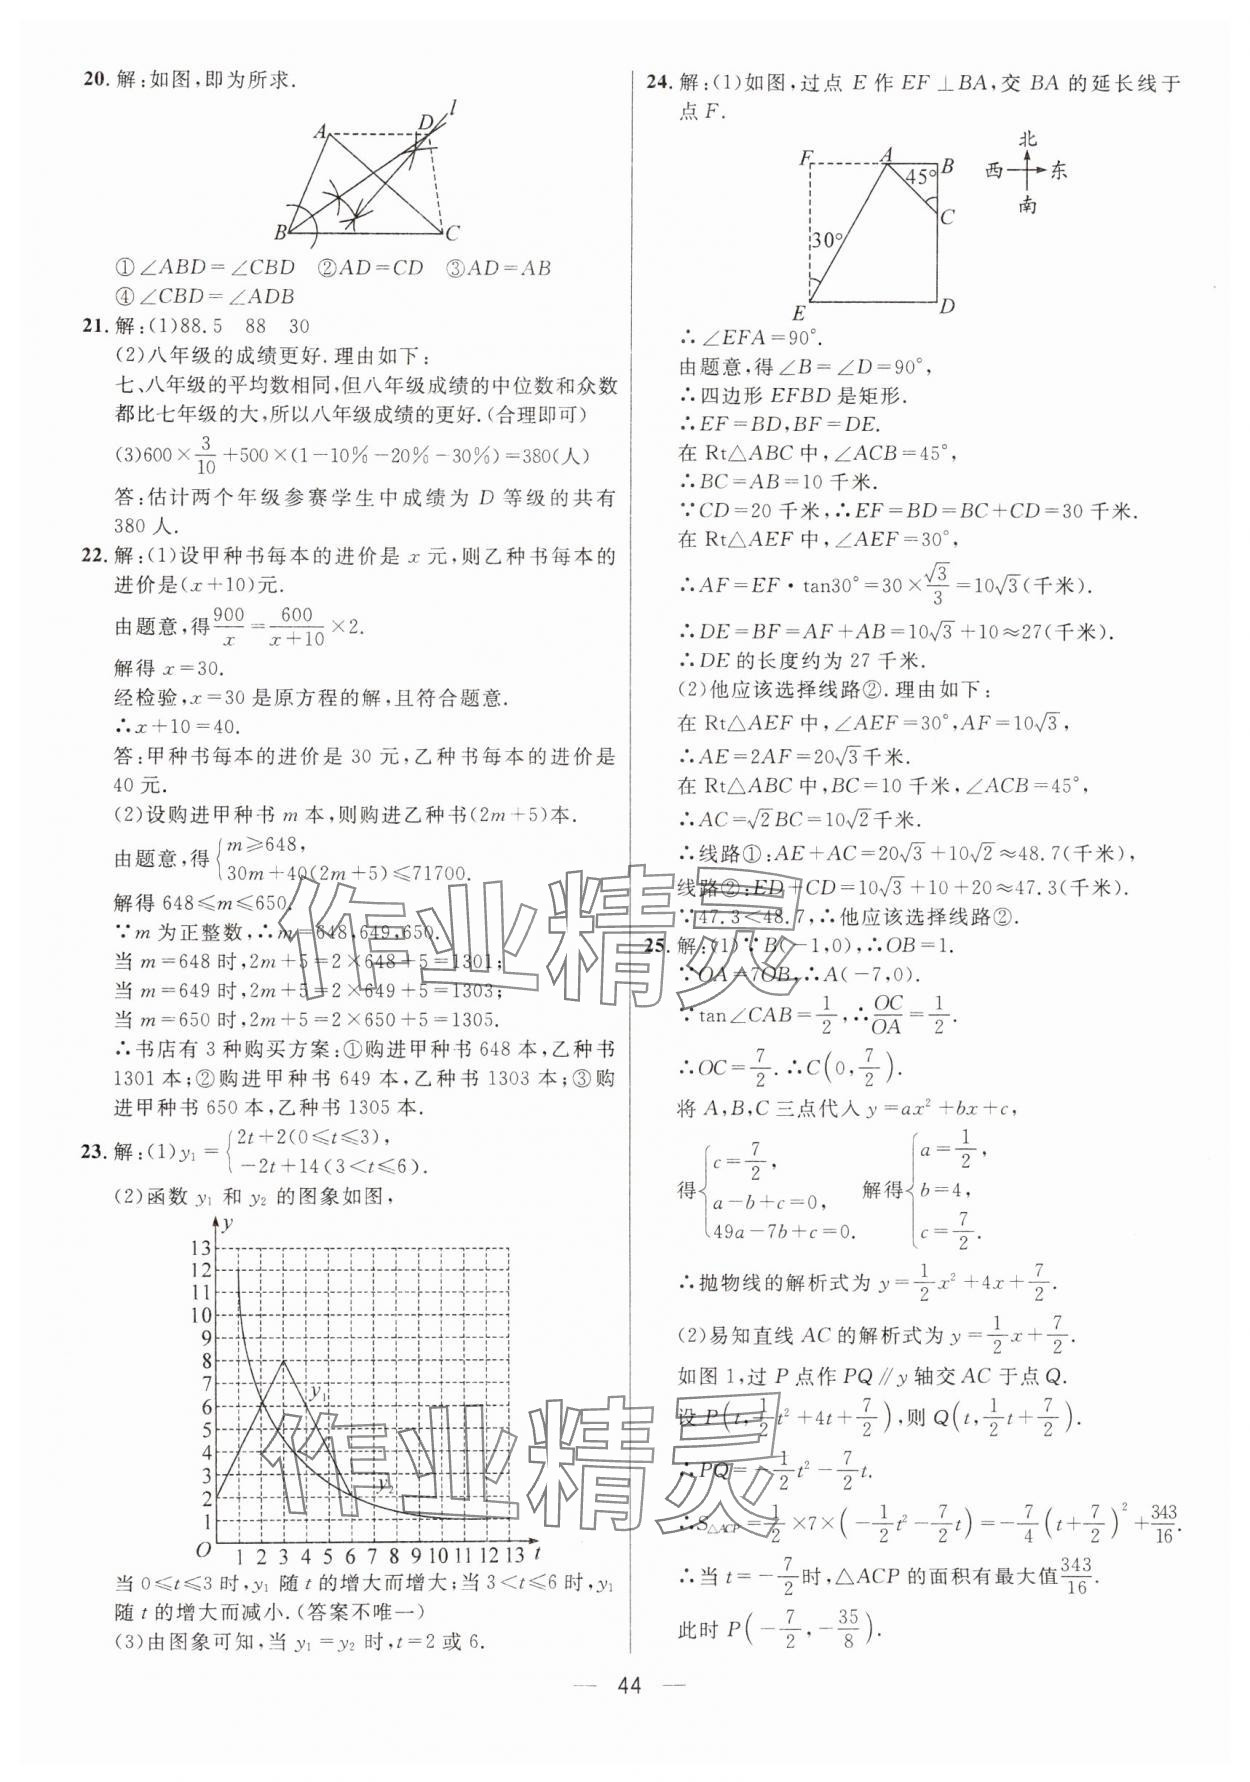 20. 解:如图,即为所求.
A D l
B C
①∠ABD=∠CBD ②AD=CD ③AD=AB
④∠CBD=∠ADB
21. 解:(1)88.5 88 30
(2)八年级的成绩更好.理由如下:
七、八年级的平均数相同,但八年级成绩的中位数和众数
都比七年级的大,所以八年级成绩的更好.(合理即可)
(3)600×3/10+500×(1-10%-20%-30%)=380(人)
答:估计两个年级参赛学生中成绩为 D 等级的共有
380 人.
22. 解:(1)设甲种书每本的进价是 x 元,则乙种书每本的
进价是(x+10)元.
由题意,得900/x=600/(x+10)×2.
解得 x=30.
经检验,x=30 是原方程的解,且符合题意.
∴x+10=40.
答:甲种书每本的进价是 30 元,乙种书每本的进价是
40 元.
(2)设购进甲种书 m 本,则购进乙种书(2m+5)本.
由题意,得{m≥648,
30m+40(2m+5)≤71700.
解得 648≤m≤650.
∵m 为正整数,∴m=648,649,650.
当 m=648 时,2m+5=2×648+5=1301;
当 m=649 时,2m+5=2×649+5=1303;
当 m=650 时,2m+5=2×650+5=1305.
∴书店有 3 种购买方案:①购进甲种书 648 本,乙种书
1301 本;②购进甲种书 649 本,乙种书 1303 本;③购
进甲种书 650 本,乙种书 1305 本.
23. 解:(1)y₁={2t+2(0≤t≤3),
-2t+14(3<t≤6).
(2)函数 y₁ 和 y₂ 的图象如图,
y
13
12
11
10
9
8
7
6
5
4
3
2
1
y₁
y₂
O 1 2 3 4 5 6 7 8 9 10 11 12 13 t
当 0≤t≤3 时,y₁ 随 t 的增大而增大;当 3<t≤6 时,y₁
随 t 的增大而减小.(答案不唯一)
(3)由图象可知,当 y₁=y₂ 时,t=2 或 6.
24. 解:(1)如图,过点 E 作 EF⊥BA,交 BA 的延长线于
点 F.
北
F A B 西 东
45° 南
C
30°
E D
∴∠EFA=90°.
由题意,得∠B=∠D=90°,
∴四边形 EFBD 是矩形.
∴EF=BD,BF=DE.
在 Rt△ABC 中,∠ACB=45°,
∴BC=AB=10 千米.
∵CD=20 千米,∴EF=BD=BC+CD=30 千米.
在 Rt△AEF 中,∠AEF=30°,
∴AF=EF·tan30°=30×√3/3=10√3(千米).
∴DE=BF=AF+AB=10√3+10≈27(千米).
∴DE 的长度约为 27 千米.
(2)他应该选择线路②.理由如下:
在 Rt△AEF 中,∠AEF=30°,AF=10√3,
∴AE=2AF=20√3千米.
在 Rt△ABC 中,BC=10 千米,∠ACB=45°,
∴AC=√2BC=10√2千米.
∴线路①:AE+AC=20√3+10√2≈48.7(千米),
线路②:ED+CD=10√3+10+20≈47.3(千米).
∵47.3<48.7,∴他应该选择线路②.
25. 解:(1)∵B(-1,0),∴OB=1.
∵OA=7OB,∴A(-7,0).
∵tan∠CAB=1/2,∴OC/OA=1/2.
∴OC=7/2.∴C(0,7/2).
将 A,B,C 三点代入 y=ax²+bx+c,
得{c=7/2,
a-b+c=0,
49a-7b+c=0.
解得{a=1/2,
b=4,
c=7/2.
∴抛物线的解析式为 y=1/2x²+4x+7/2.
(2)易知直线 AC 的解析式为 y=1/2x+7/2.
如图 1,过 P 点作 PQ∥y 轴交 AC 于点 Q.
设 P(t,1/2t²+4t+7/2),则 Q(t,1/2t+7/2).
∴PQ=-1/2t²-7/2t.
∴S△ACP=1/2×7×(-1/2t²-7/2t)=-7/4(t+7/2)²+343/16.
∴当 t=-7/2时,△ACP 的面积有最大值343/16.
此时 P(-7/2,-35/8).
44
作业精灵
作业精灵